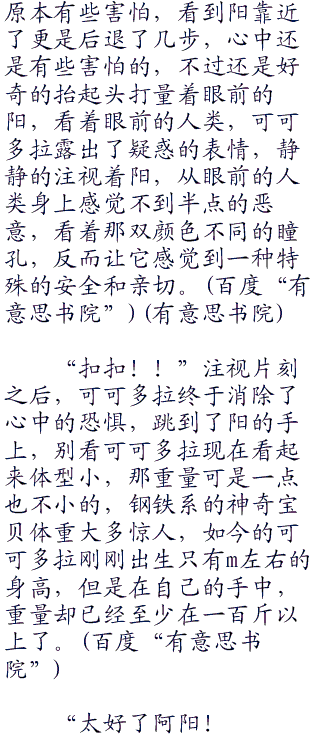 原本有些害怕，看到阳靠近
了更是后退了几步，心中还
是有些害怕的，不过还是好
奇的抬起头打量着眼前的
阳，看着眼前的人类，可可
多拉露出了疑惑的表情，静
静的注视着阳，从眼前的人
类身上感觉不到半点的恶
意，看着那双颜色不同的瞳
孔，反而让它感觉到一种特
殊的安全和亲切。(百度“有
意思书院”)(有意思书院)
“扣扣！！”注视片刻
之后，可可多拉终于消除了
心中的恐惧，跳到了阳的手
上，别看可可多拉现在看起
来体型小，那重量可是一点
也不小的，钢铁系的神奇宝
贝体重大多惊人，如今的可
可多拉刚刚出生只有m左右的
身高，但是在自己的手中，
重量却已经至少在一百斤以
上了。(百度“有意思书
院”)
“太好了阿阳！